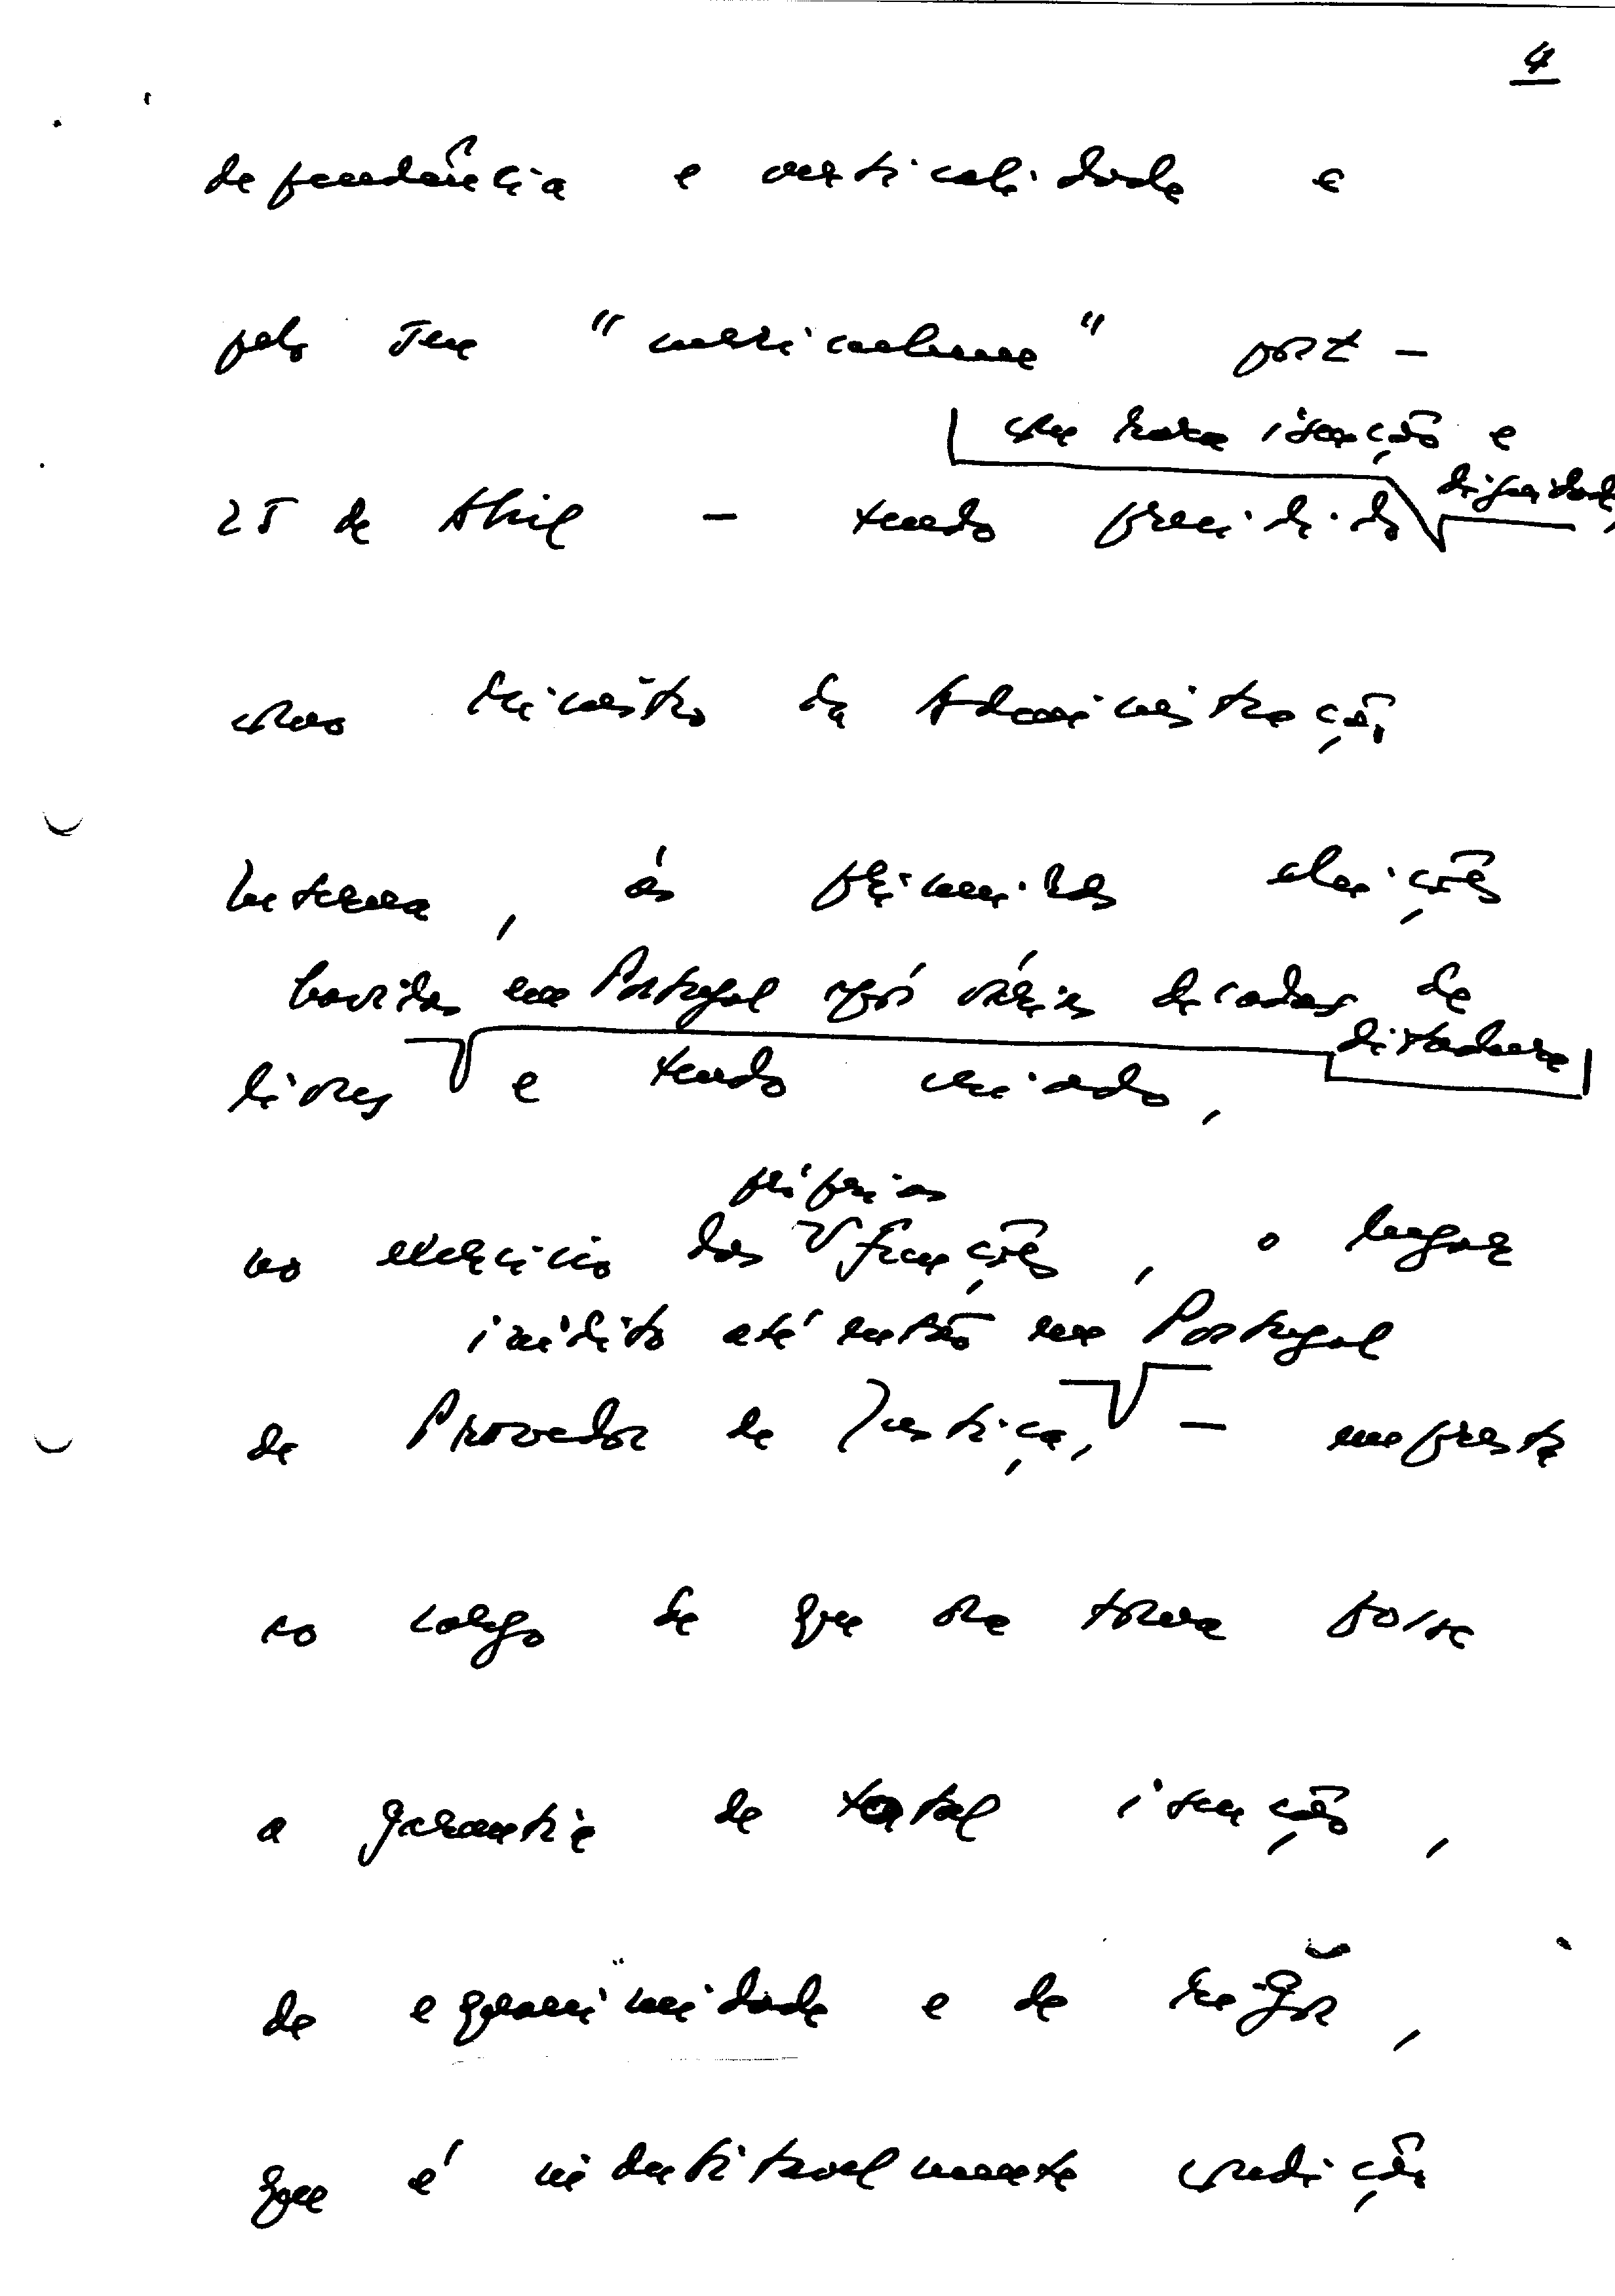 4
pendência e verticalidade e
pelo seu "curriculum" post-
com rara isenção e
dignidade,
25 de Abril - tendo presidido
como Ministro da Administração
Interna, às primeiras eleições
havidas em Portugal após várias décadas de
ditadura
livres e tendo criado,
próprias
no exercício das funções, o lugar
inédito até então em Portugal
de Provedor de Justiça, - empresta
ao cargo de que ora toma posse
a garantia de total isenção,
de equanimidade e de rigor,
que é indubitavelmente condição